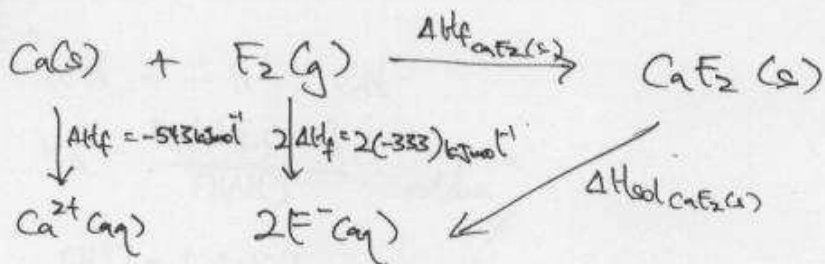 ΔHf CaF₂(s)
Ca(s) + F₂(g) → CaF₂(s)
↓ ΔHf = -543 kJmol⁻¹ 2↓ΔHf = 2(-333) kJmol⁻¹
ΔHsol CaF₂(s)
Ca²⁺(aq) 2F⁻(aq)